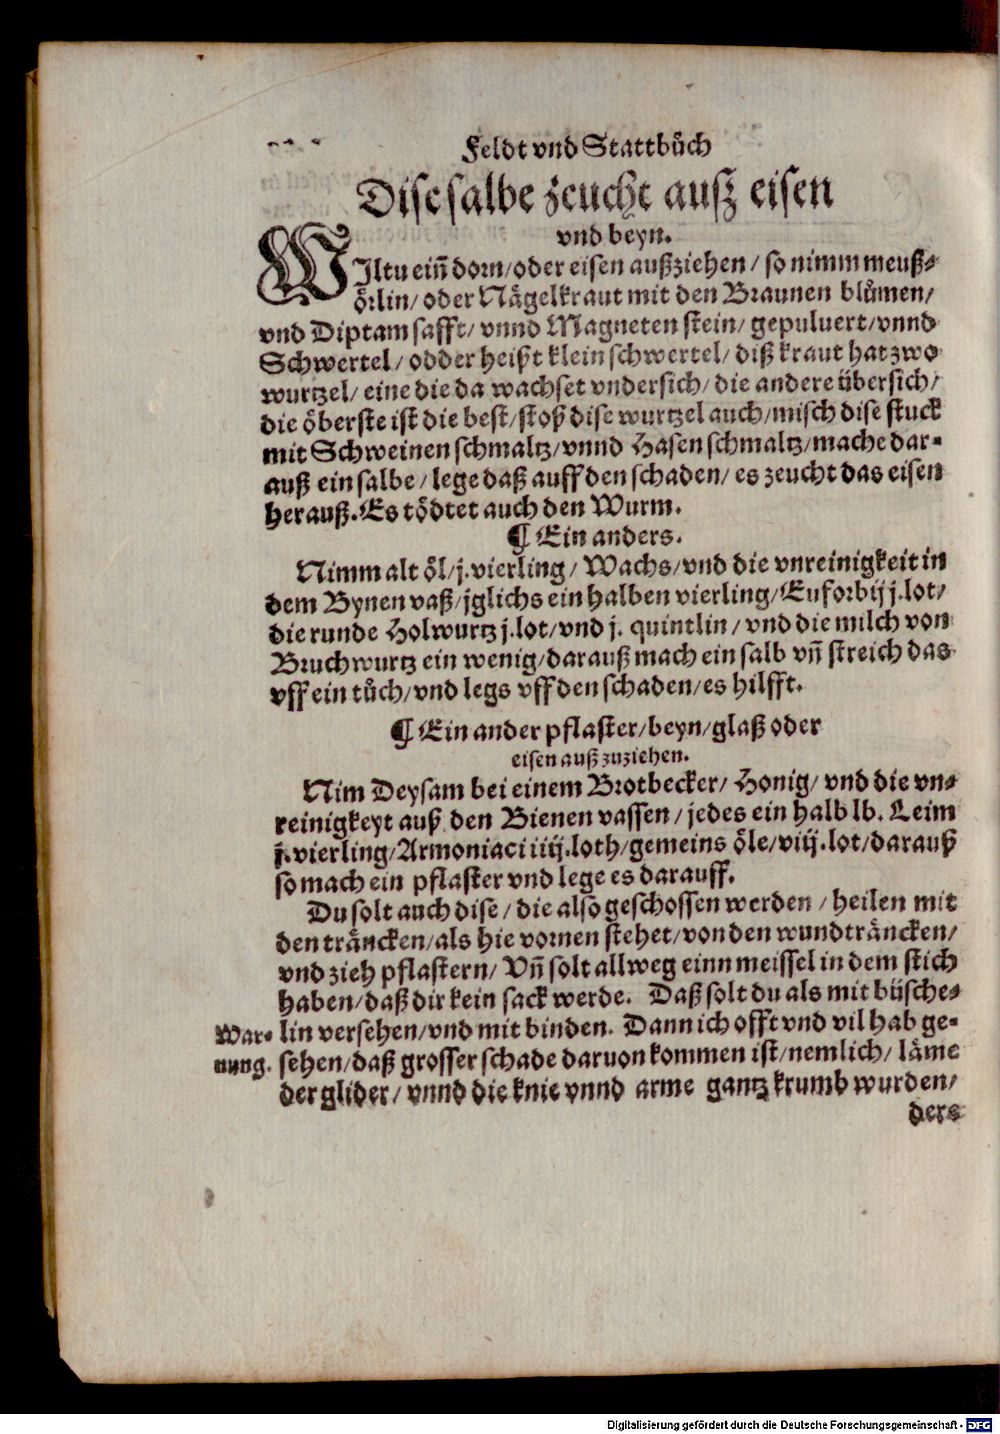 Feldt vnd Stattbůch
Dise salbe zeucht auß eisen
vnd beyn.
WIltu eiñ dorn/oder eisen außziehen/ so nimm meuß-
örlin/ oder Nägelkraut mit den Braunen blůmen/
vnd Diptam safft/ vnnd Magneten stein/ gepuluert/vnnd
Schwertel/ odder heißt klein schwertel/ diß kraut hat zwo
wurtzel/ eine die da wachset vndersich/ die andere übersich/
die öberste ist die best/stoß dise wurtzel auch/misch dise stuck
mit Schweinen schmaltz/vnnd Hasen schmaltz/mache dar-
auß ein salbe/ lege daß auff den schaden/ es zeucht das eisen
herauß. Es tödtet auch den Wurm.
¶ Ein anders.
Nimm alt öl/j.vierling/ Wachs/vnd die vnreinigkeit in
dem Bynen vaß/jglichs ein halben vierling/Euforbij j.lot/
die runde Holwurtz j.lot/vnd j. quintlin/ vnd die milch von
Bruchwurtz ein wenig/darauß mach ein salb vñ streich das
vff ein tůch/vnd legs vff den schaden/es hilfft.
¶ Ein ander pflaster/beyn/glaß oder
eisen auß zuziehen.
Nim Deysam bei einem Brotbecker/ Honig/ vnd die vn-
reinigkeyt auß den Bienen vassen/ jedes ein halb lb. Leim
j.vierling/Armoniaci iiij.loth/gemeins öle/viij.lot/darauß
so mach ein pflaster vnd lege es darauff.
Du solt auch dise/ die also geschossen werden/ heilen mit
den träncken/als hie vornen stehet/von den wundträncken/
vnd zieh pflastern/ Vñ solt allweg einn meissel in dem stich
haben/daß dir kein sack werde. Daß solt du als mit büsche-
War- lin versehen/vnd mit binden. Dann ich offt vnd vil hab ge-
nung. sehen/daß grosser schade daruon kommen ist/nemlich/ läme
der glider/ vnnd die knie vnnd arme gantz krumb wurden/
ders
Digitalisierung gefördert durch die Deutsche Forschungsgemeinschaft - DFG